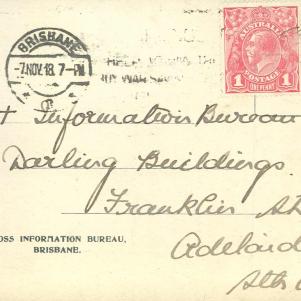 BRISBANE
-7NOV.18. 7-PM
AUSTRALIA
POSTAGE
1 1
ONE PENNY
Information Bureau
Darling Buildings
Franklin St
Adelaid
Sth
OSS INFORMATION BUREAU,
BRISBANE.